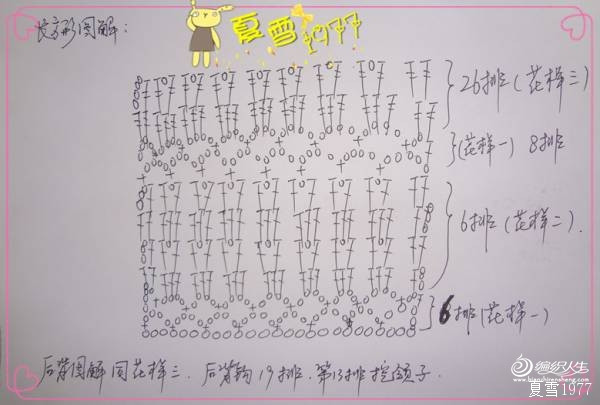 夏雪1977
长方形图解：
26排（花样三）
（花样一）8排
6排（花样二）.
6排（花样一）
后背图解同花样三. 后背钩19排. 第13排挖领子.
编织人生
www.bianzhirensheng.com
夏雪1977